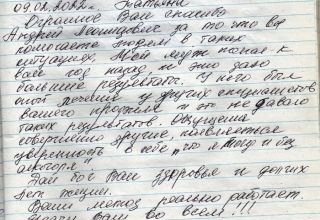 09.02.2022г. Татьяна
Огромное Вам спасибо
Андрей Леонидович за то что вы
помогаете людям в таких
ситуациях. Мой муж попал к
вам год назад, и это дало
большие результаты. У него был
опыт лечения у других специалистов
вашего профиля и это не давало
таких результатов. Ощущения
совершенно другие, появляется
уверенность в себе "что я могу и без
алкоголя"
Дай бог Вам здоровья и долгих
лет жизни.
Ваш метод реально работает.
Удачи Вам во всем!!!